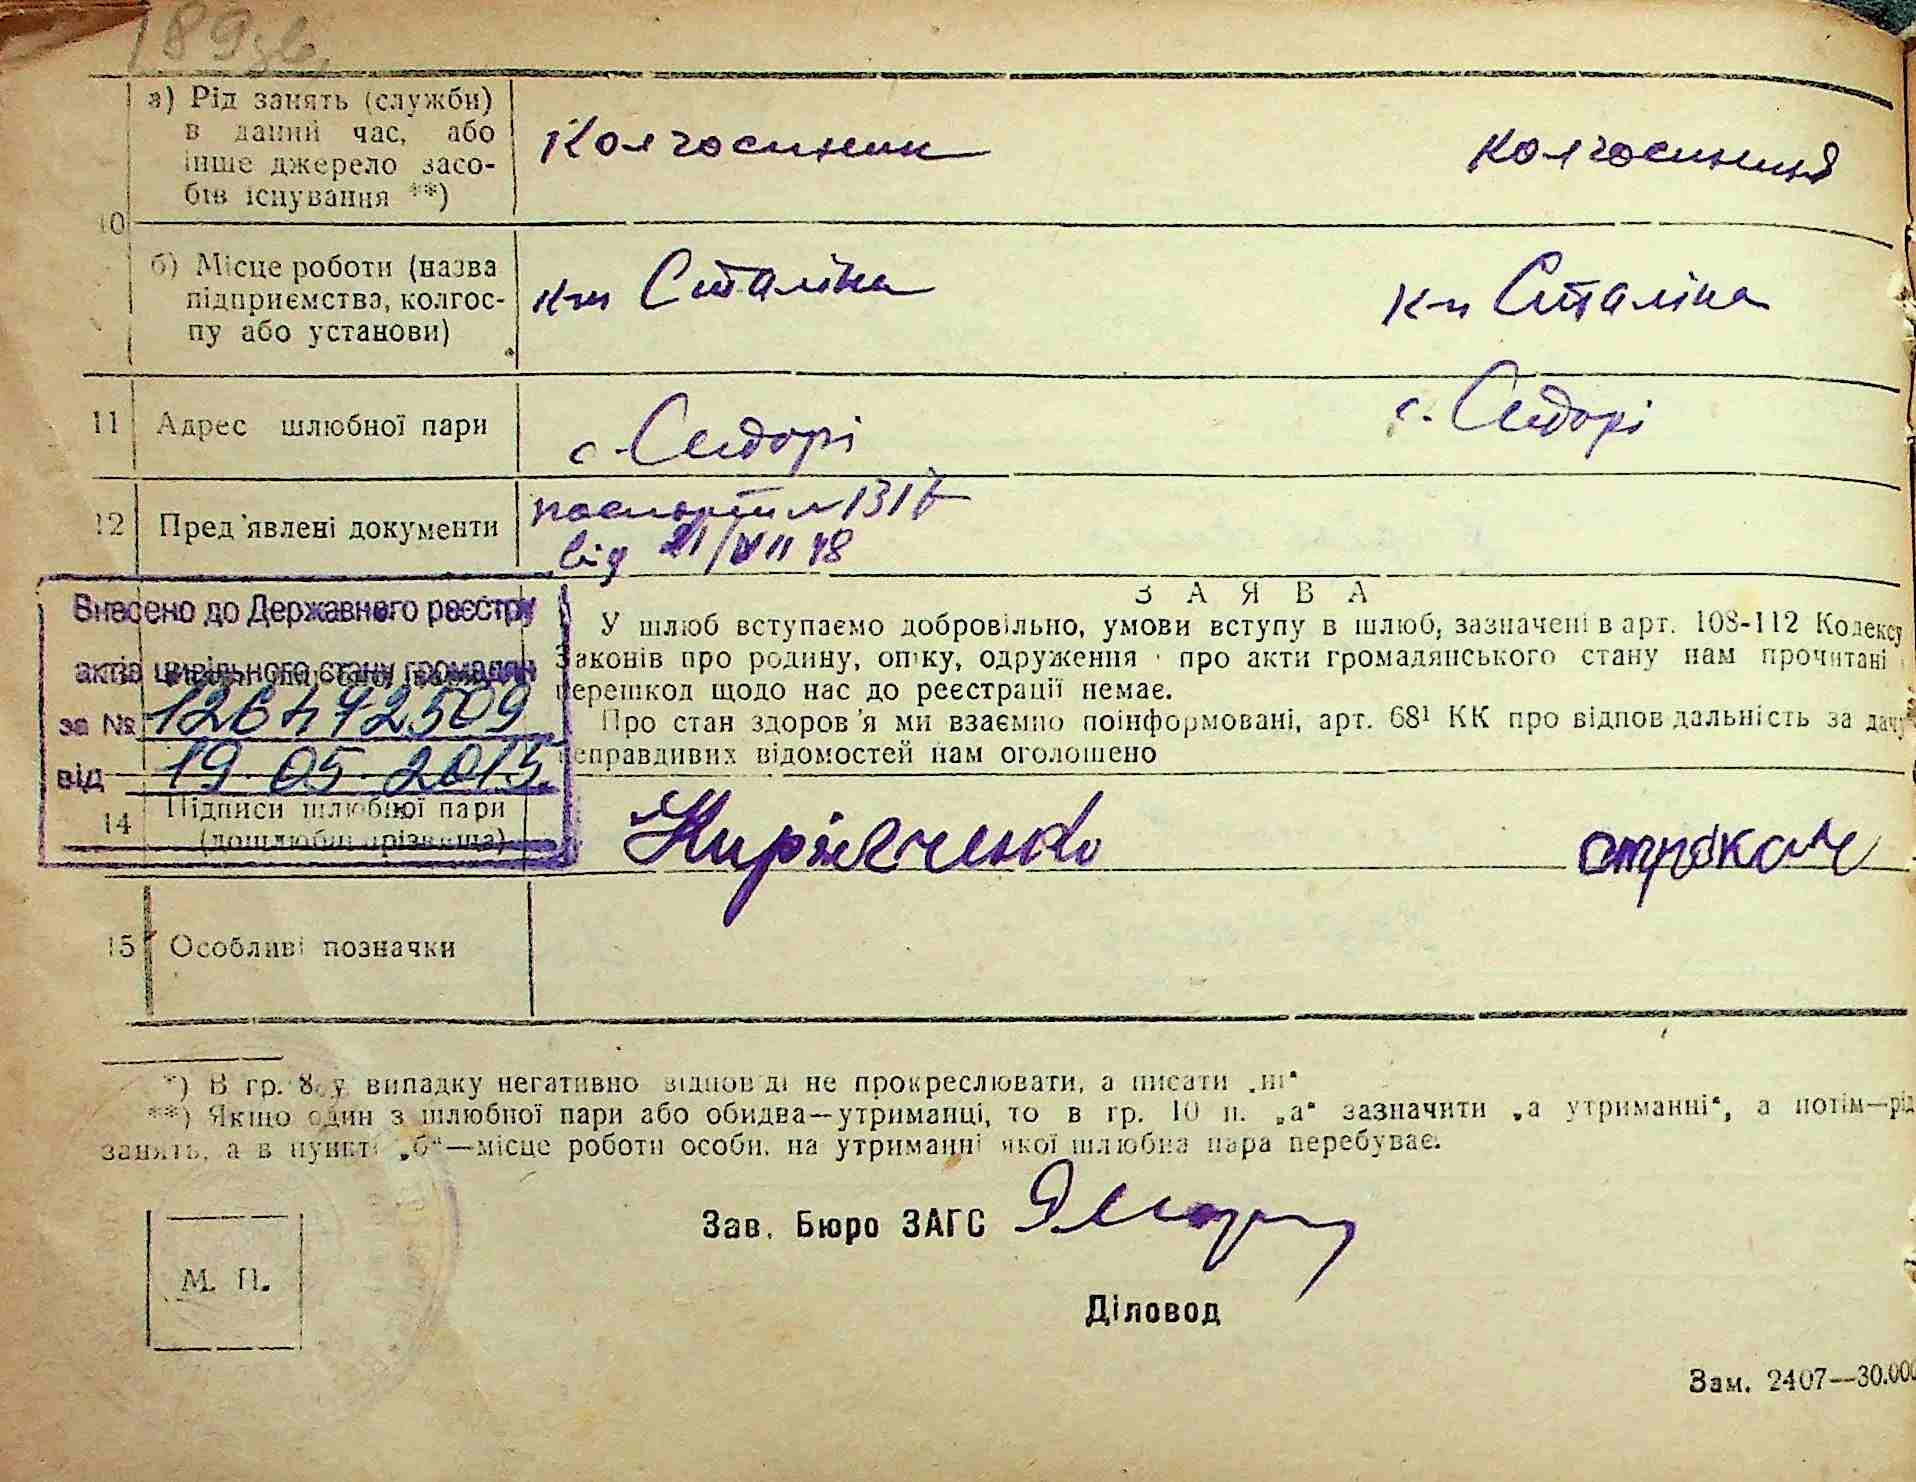 189зв.
а) Рід занять (служби)
в даний час, або
інше джерело засо-
бів існування **)
Колгоспник
Колгоспниця
10
б) Місце роботи (назва
підприємства, колгос-
пу або установи)
к-п Сталіна
к-п Сталіна
11 Адрес шлюбної пари
с.
с.
12 Пред'явлені документи
паспорт №
від
Внесено до Державного реєстру
актів цивільного стану громадян
за №
від 19.05.2015.
З А Я В А
У шлюб вступаємо добровільно, умови вступу в шлюб, зазначені в арт. 108-112 Кодексу
Законів про родину, опіку, одруження про акти громадянського стану нам прочитані
перешкод щодо нас до реєстрації немає.
Про стан здоров'я ми взаємно поінформовані, арт. 68¹ КК про відповідальність за дачу
неправдивих відомостей нам оголошено
14 Підписи шлюбної пари
(дошлюбні прізвища)
Киріяченко
15 Особливі позначки
*) В гр. 8 у випадку негативно відповіді не прокреслювати, а писати „ні“
**) Якщо один з шлюбної пари або обидва—утриманці, то в гр. 10 п. „а“ зазначити „а утриманні“, а потім—рід
занять, а в пункті „б“—місце роботи особи, на утриманні якої шлюбна пара перебуває.
Зав. Бюро ЗАГС
М. П.
Діловод
Зам. 2407—30.000